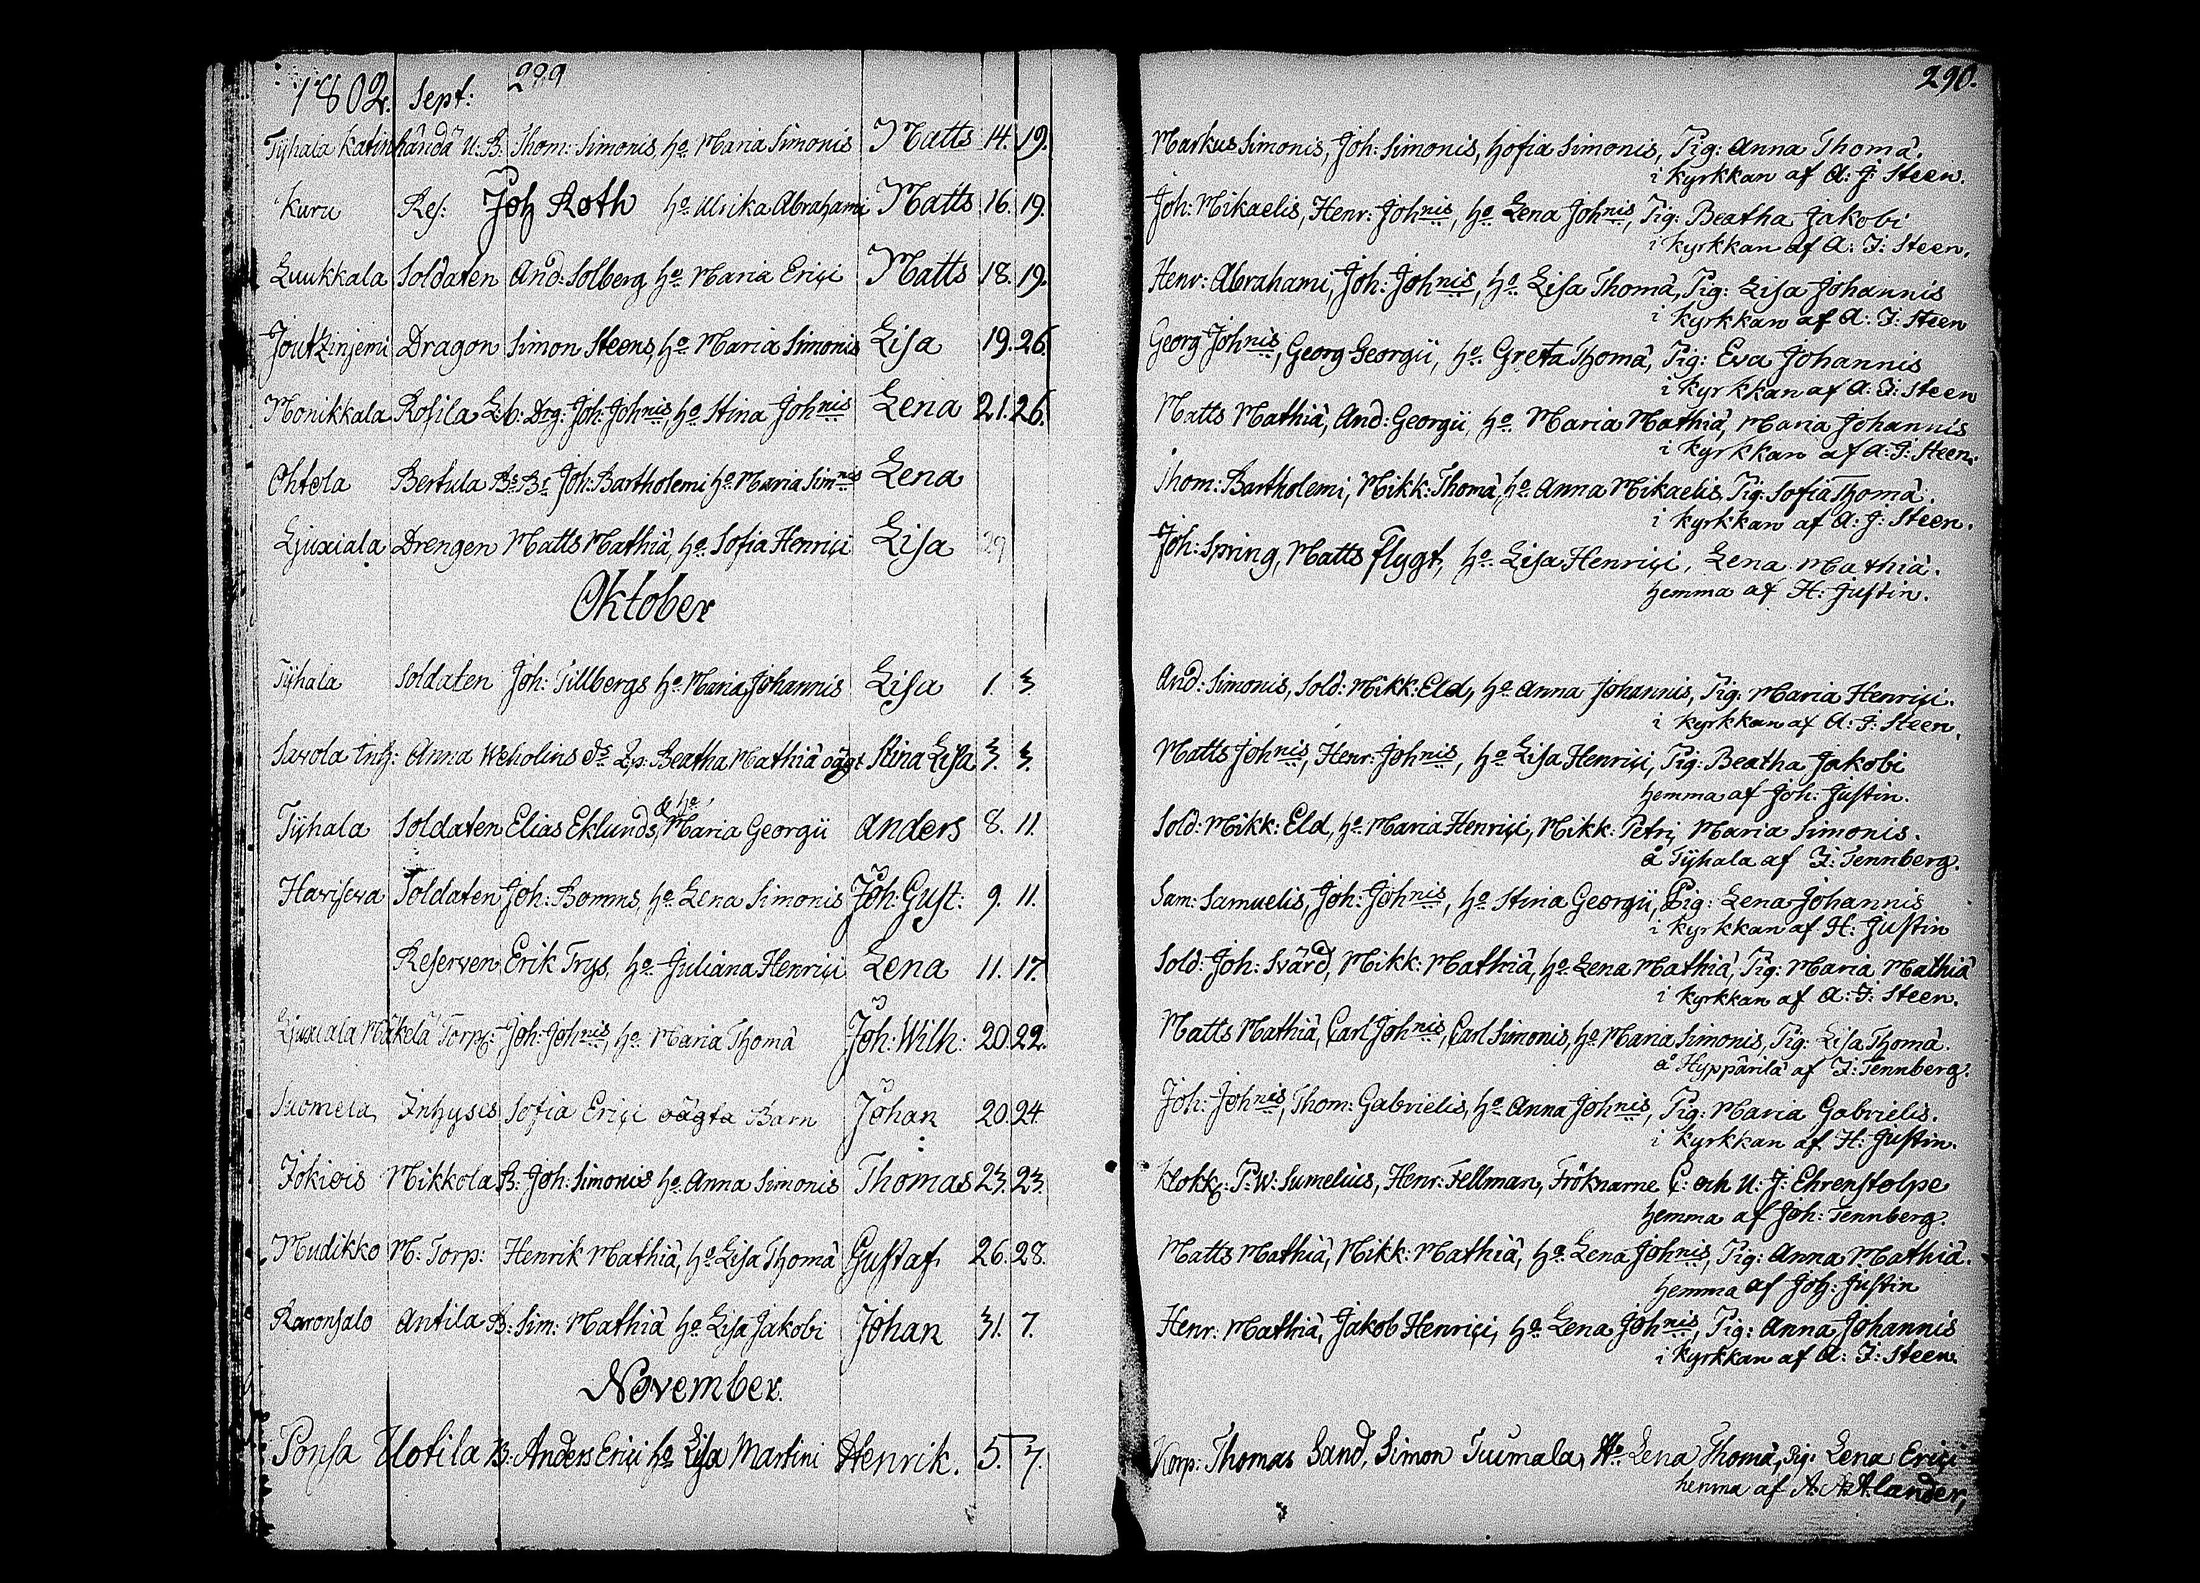 1802. Sept: 289
Tÿhala Katinhända U: B: Thom: Simonis, ho Maria Simonis Matts 14. 19.
Kuru Res: Joh Roth ho Ulrika Abrahami Matts 16. 19.
Luukkala Soldaten And: Solberg ho Maria Eriçi Matts 18. 19.
Joutzinjemi Dragon Simon Steens, ho Maria Simonis Lisa 19. 26.
Monikkala Rosila Lb: Drg: Joh: Johnis, ho Stina Johnis Lena 21. 26.
Ohtola Bertula Bs Br Joh: Bartholemi ho Maria Simnis Lena
Ljuxiala Drengen Matts Mathiä, ho Sofia Henriçi Lisa 29
Oktober
Tÿhala Soldaten Joh: Tillbergs ho Maria Johannis Lisa 1. 3
Savola Inh: Anna Weholins ds Beatha Mathiä oägt Stina Lisa 3. 3.
Tÿhala Soldaten Elias Eklunds, & ho Maria Georgii Anders 8. 11.
Harisewa Soldaten Joh: Bomms, ho Lena Simonis Joh: Gust: 9. 11.
Reserven Erik Trys, ho Juliana Henriçi Lena 11. 17.
Ljuxiala Mäkelä Torp: Joh: Johnis, ho Maria Thomä Joh: Wilh: 20. 22.
Suomela Inhyses Sofia Eriçi oägta Barn Johan 20. 24.
Jokiois Mikkola B: Joh: Simonis ho Anna Simonis Thomas 23. 23.
Mudikko M: Torp: Henrik Mathiä, ho Lisa Thomä Gustaf 26. 28.
Raronsalo Antila B: Sim: Mathiä ho Lisa Jakobi Johan 31. 7.
November.
Ponsa Uotila B: Anders Eriçi ho Lisa Martini Henrik. 5. 7.
290.
Markus Simonis, Joh: Simonis, hofia Simonis, Pig: Anna Thomä.
i Kyrkkan af A: J: Steen.
Joh: Mikaelis, Henr: Johnis, ho Lena Johnis, Pig: Beatha Jakobi
i Kyrkkan af A: J: Steen.
Henr: Abrahami, Joh: Johnis, ho Lisa Thomä, Pig: Lisa Johannis
i Kyrkkan af A: J: Steen
Georg Johnis, Georg Georgii, ho Greta Thomä, Pig: Eva Johannis
i Kyrkkan af A: J: Steen
Matts Mathiä, And: Georgii, ho Maria Mathiä, Maria Johannis
i Kyrkkan af A: J: Steen.
Thom: Bartholemi, Mikk: Thomä, ho Anna Mikaelis, Pig: Sofia Thomä.
i Kyrkkan af A: J: Steen.
Joh: Spring, Matts Flygt, ho Lisa Henriçi, Lena Mathiä.
hemma af H: Justin.
And: Simonis, Sold: Mikk: Eld, ho Anna Johannis, Pig: Maria Henriçi.
i Kyrkkan af A: J: Steen.
Matts Johnis, Henr: Johnis, ho Lisa Henriçi, Pig: Beatha Jakobi
hemma af Joh: Justin.
Sold: Mikk: Eld, ho Maria Henriçi, Mikk: Petri, Maria Simonis.
å Tÿhala af J: Tennberg.
Sam: Samuelis, Joh: Johnis, ho Stina Georgii, Pig: Lena Johannis
i Kyrkkan af H: Justin
Sold: Joh: Svärd, Mikk: Mathiä, ho Lena Mathiä, Pig: Maria Mathiä
i Kyrkkan af A: J: Steen.
Matts Mathiä, Carl Johnis, Carl Simonis, ho Maria Simonis, Pig: Lisa Thomä.
å Hyppärilä af J: Tennberg.
Joh: Johnis, Thom: Gabrielis, ho Anna Johnis, Pig: Maria Gabrielis.
i Kyrkkan af H: Justin.
Klokk: P: W: Sumelius, Henr: Fellman, Fröknarne C: och U: J: Ehrenstolpe
hemma af Joh: Tennberg.
Matts Mathiä, Mikk: Mathiä, ho Lena Johnis, Pig: Anna Mathiä.
hemma af Joh: Justin
Henr: Mathiä, Jakob Henriçi, ho Lena Johnis, Pig: Anna Johannis
i Kyrkkan af A: J: Steen.
Korp: Thomas Sand, Simon Tuumala, Ho Lena Thomä, Pig: Lena Eriçi
hemma af A: Alander,